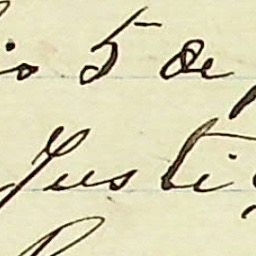 io 5 de
Justi